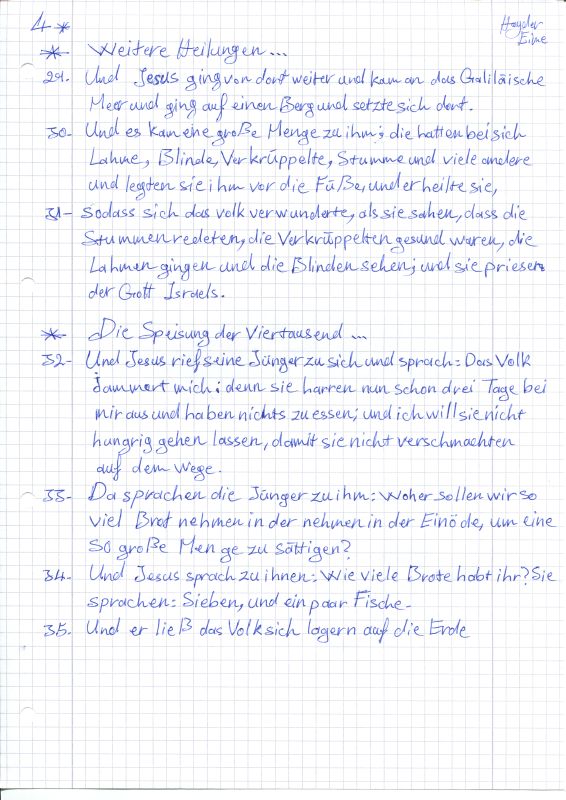 4 *
Hayder
Eime
* Weitere Heilungen...
29. Und Jesus ging von dort weiter und kam an das Galiläische
Meer und ging auf einen Berg und setzte sich dort.
30- Und es kam eine große Menge zu ihm; die hatten bei sich
Lahme, Blinde, Verkrüppelte, Stumme und viele andere
und legten sie ihm vor die Füße, und er heilte sie,
31- sodass sich das Volk verwunderte, als sie sahen, dass die
Stummen redeten, die Verkrüppelten gesund waren, die
Lahmen gingen und die Blinden sehen; und sie priesen
der Gott Israels.
* Die Speisung der Viertausend...
32- Und Jesus rief seine Jünger zu sich und sprach: Das Volk
jammert mich; denn sie harren nun schon drei Tage bei
mir aus und haben nichts zu essen; und ich will sie nicht
hungrig gehen lassen, damit sie nicht verschmachten
auf dem Wege.
33- Da sprachen die Jünger zu ihm: Woher sollen wir so
viel Brot nehmen in der nehmen in der Einöde, um eine
so große Menge zu sättigen?
34- Und Jesus sprach zu ihnen: Wie viele Brote habt ihr? Sie
sprachen: Sieben, und ein paar Fische.
35. Und er ließ das Volk sich lagern auf die Erde